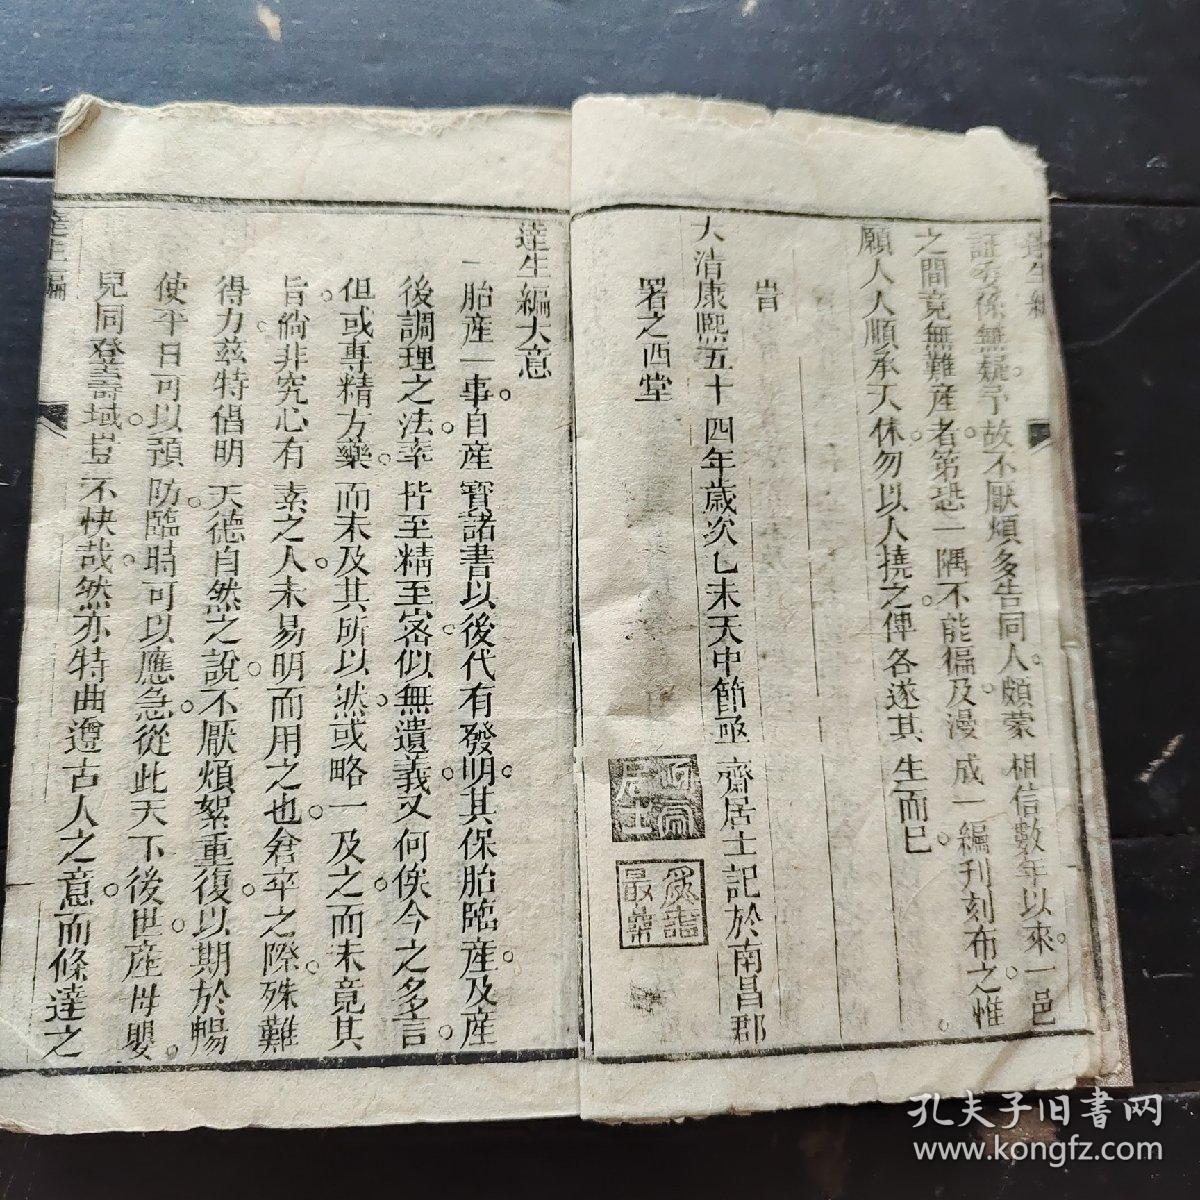 達生編
証委係無疑予故不厭煩多告同人頗蒙相信數年以來一邑
之間竟無難產者第恐一隅不能徧及漫成一編刊刻布之惟
願人人順承天休勿以人撓之俾各遂其生而已
旹
大清康熙五十四年歲次乙未天中節亟齋居士記於南昌郡
署之西堂
達生編大意
一胎產一事自產寶諸書以後代有發明其保胎臨產及產
後調理之法率皆至精至密似無遺義又何俟今之多言
但或專精方藥而未及其所以然或略一及之而未竟其
旨倘非究心有素之人未易明而用之也倉卒之際殊難
得力茲特倡明天德自然之說不厭煩絮重復以期於暢
使平日可以預防臨時可以應急從此天下後世產母嬰
兒同登壽域豈不快哉然亦特曲遵古人之意而條達之
達生編
孔夫子旧書网
www.kongfz.com